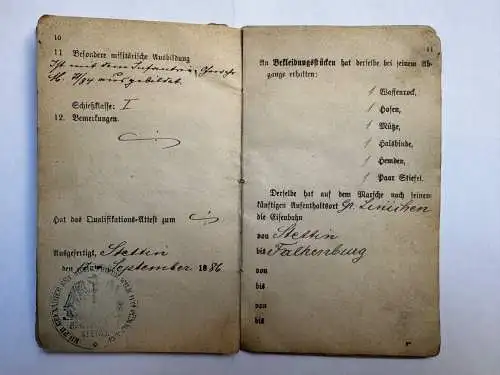 10
11 Besondere militärische Ausbildung
Ist mit dem Infanterie-
M. 71/84 ausgebildet.
Schießklasse: I
12. Bemerkungen.
Hat das Qualifikations-Attest zum
Ausgefertigt, Stettin
den September 1886
11
An Bekleidungsstücken hat derselbe bei seinem Ab-
gange erhalten:
1 Waffenrock,
1 Hosen,
1 Mütze,
1 Halsbinde,
1 Hemden,
1 Paar Stiefel.
Derselbe hat auf dem Marsche nach seinem
künftigen Aufenthaltsort Gr. Linichen
die Eisenbahn
von Stettin
bis Falkenburg
von
bis
von
bis